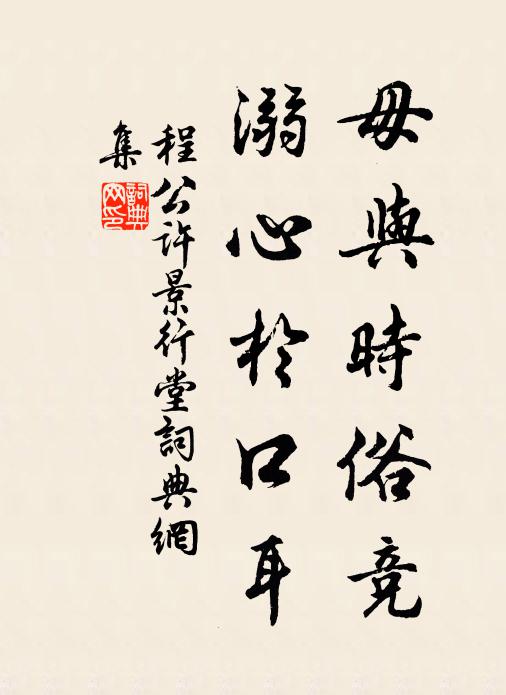 毋與時俗竞
溺心於口耳
程公許景行堂詞典網
集
詞典网印